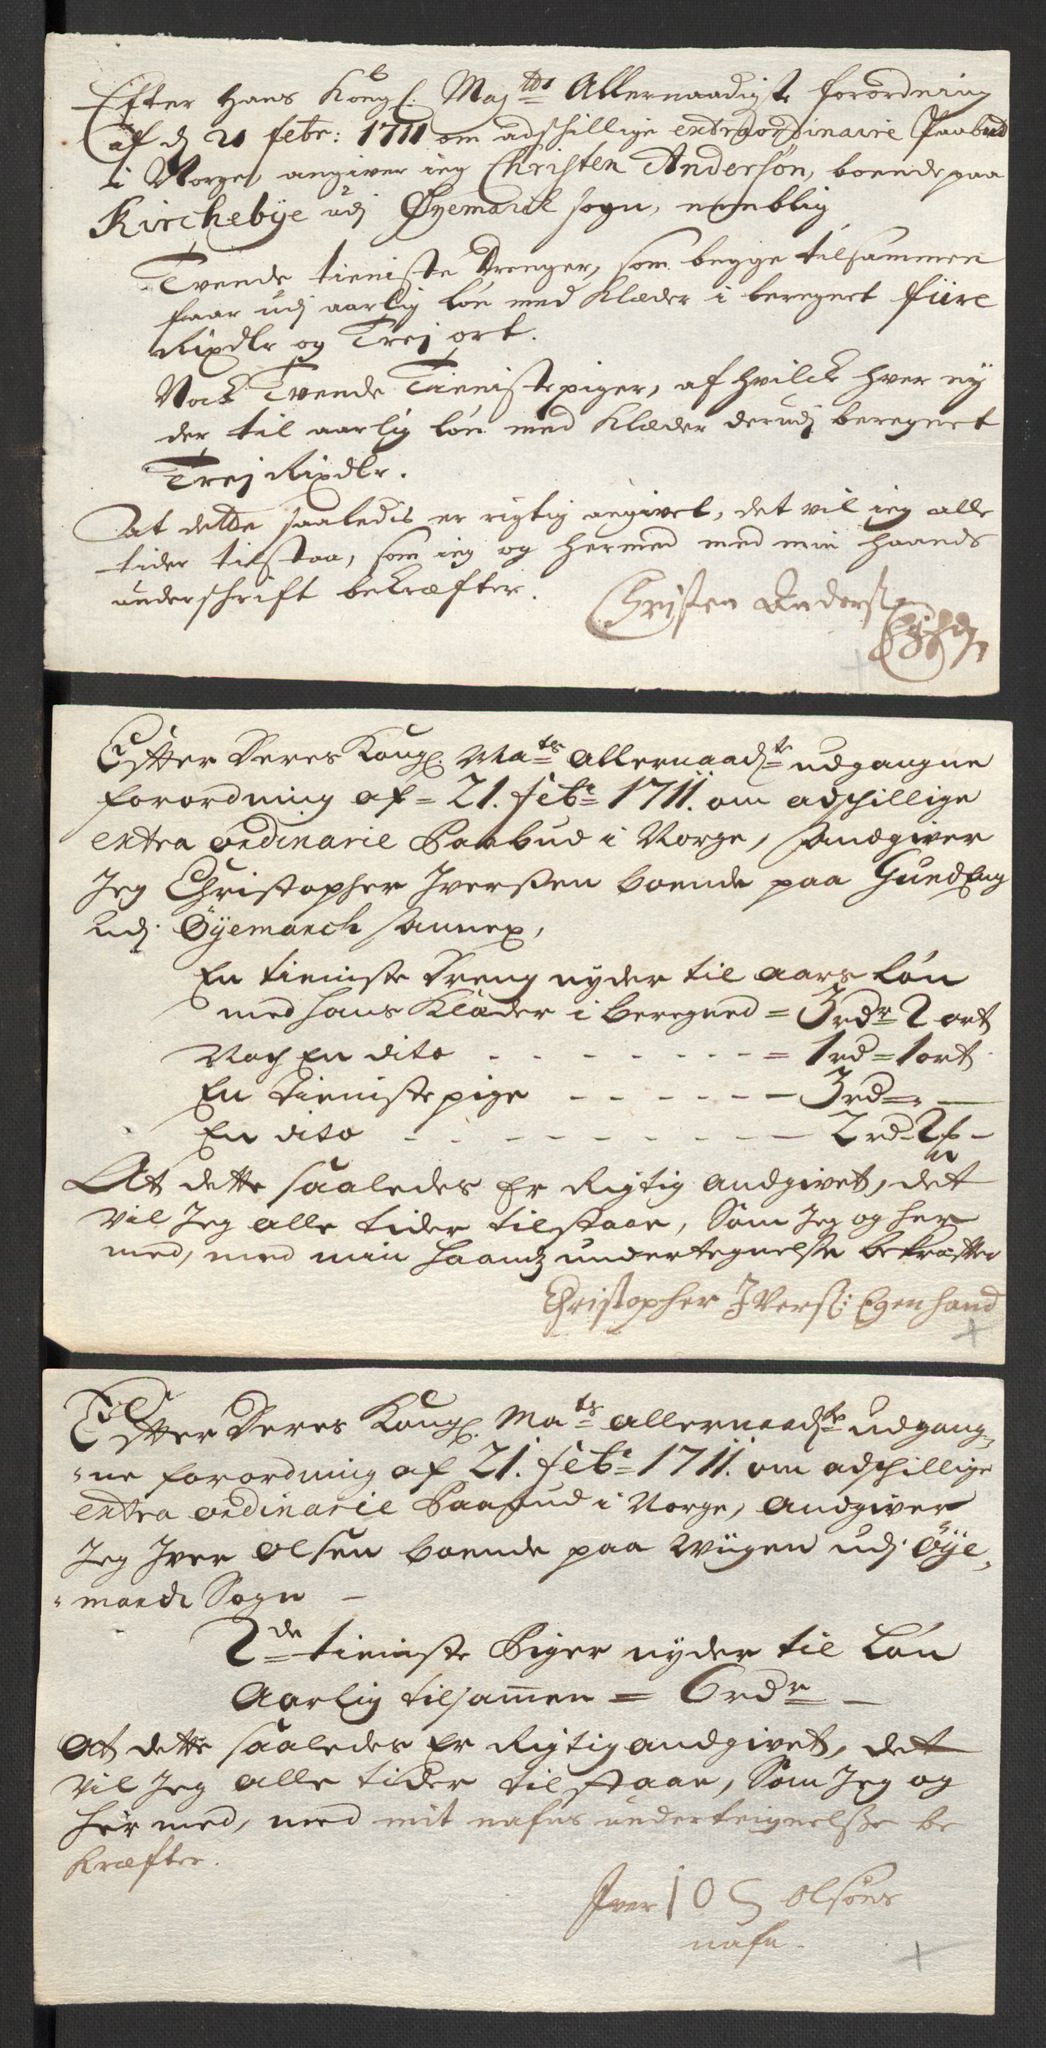 Efter Hans Kongl. Maj:tts Allernaadigste forordning
af d 21 febr: 1711 om adschillige extraordinaire Paabud
i Norge, angiver ieg Christen Andersøn, boende paa
Kirchebye udj Øyemarck sogn, nemblig
Tvende tieniste Drenger, som begge tilsammen
faar udj aarlig løn med Klæder i beregnet fiire
Rixdlr og Trej ort.
Noch Tvende Tienistepiger, af hvilcke hver ny
der til aarlig løn med Klæder derudj beregnet
Trej Rixdlr.
At dette saaledis er rigtig angivet, det vil ieg alle
tider tilstaa, som ieg og hermed med min haands
underschrift bekræfter.
Christen Anders
Efter Deres Kongl. Ma:ts allernaad:te udgangne
forordning af = 21. feb:r 1711. om adschillige
extra ordinarie Paabud i Norge, andgiver
Jeg Christopher Iverßen boende paa Gundeng
udj Øyemarch annex,
En tieniste Dreng nyder til aars Løn
med hans Klæder i beregned = 3 rd:r 2 ort
Noch En dito - - - - - - = 1 rd = 1 ort
En tieniste pige - - - - - - 3 rd =
En dito - - - - - - - 2 rd - 2 ß -
At dette saaledes Er Rigtig andgivet, det
vil Jeg alle tider tilstaae, Som Jeg og her
med, med min haandz undertegnelse bekræfter
Christopher Iverß: Egenhand
Efter Deres Kongl. Ma:ts allernaad:te udgang-
ne forordning af 21. feb:r 1711. om adschillige
extra ordinarie Paabud i Norge, andgiver
Jeg Iver Olsen boende paa Wiigen udj Øye-
march Sogn -
2:de tieniste Piger nyder til Løn
Aarlig tilsamen = 6 rd:r -
At dette saaledes Er Rigtig andgivet, det
vil Jeg alle tider tilstaae, Som Jeg og
her med, med mit nafns underteignelße be
kræfter.
Iver I O S Olsøns
nafn.